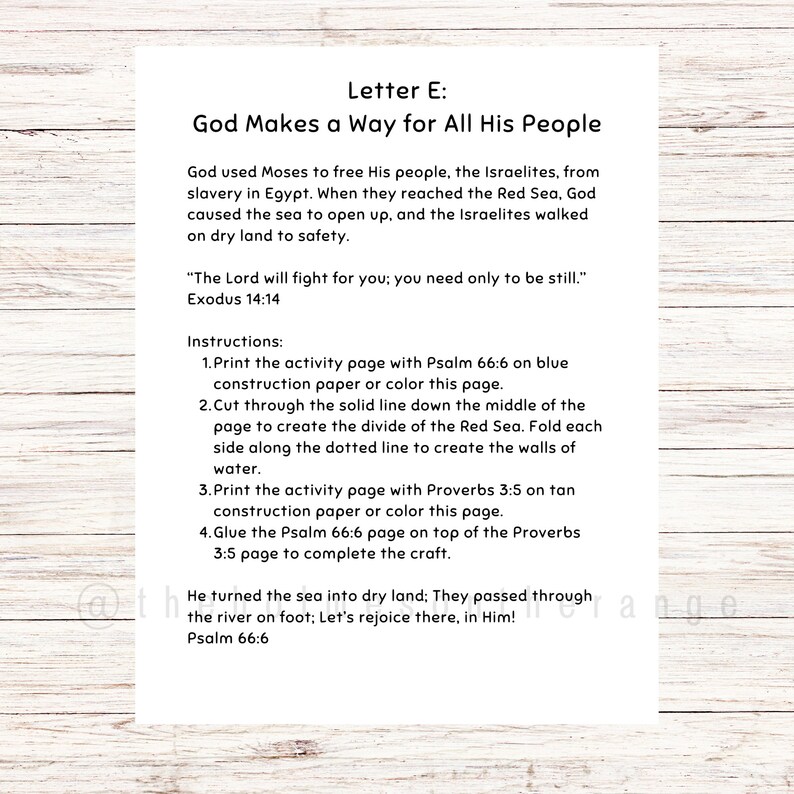 Letter E:
God Makes a Way for All His People
God used Moses to free His people, the Israelites, from
slavery in Egypt. When they reached the Red Sea, God
caused the sea to open up, and the Israelites walked
on dry land to safety.
“The Lord will fight for you; you need only to be still.”
Exodus 14:14
Instructions:
1. Print the activity page with Psalm 66:6 on blue
construction paper or color this page.
2. Cut through the solid line down the middle of the
page to create the divide of the Red Sea. Fold each
side along the dotted line to create the walls of
water.
3. Print the activity page with Proverbs 3:5 on tan
construction paper or color this page.
4. Glue the Psalm 66:6 page on top of the Proverbs
3:5 page to complete the craft.
He turned the sea into dry land; They passed through
@theholmesontherange
the river on foot; Let’s rejoice there, in Him!
Psalm 66:6